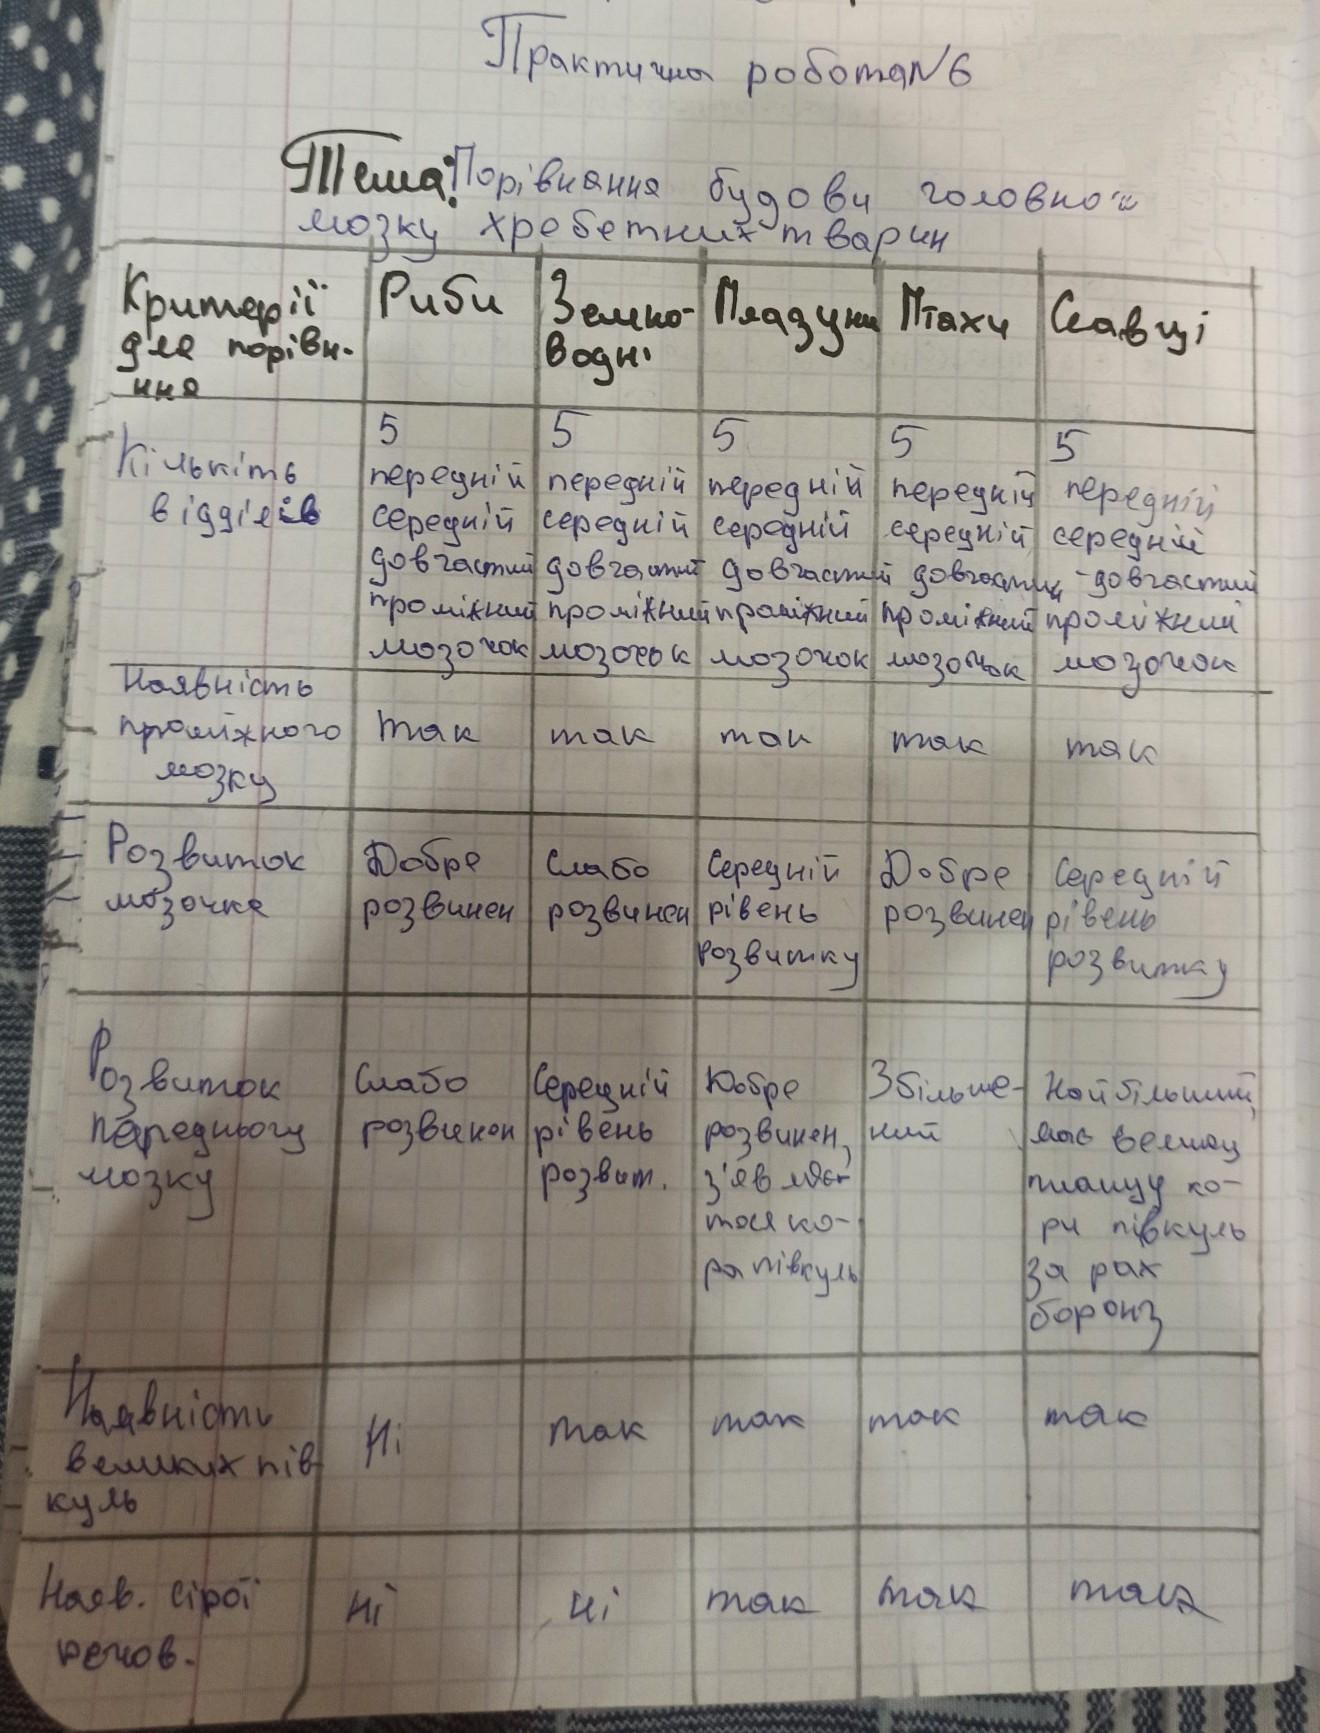 Практична робота №6
Тема: Порівняння будови головної
мозку хребетних тварин
Критерії
для порівн-
ння
Риби
Земно-
водні
Плазуни
Птахи
Ссавці
Кількіть
відділів
5
передній
середній
довгастий
проміжний
мозочок
5
передній
середній
довгастий
проміжний
мозочок
5
передній
середній
довгастий
проміжний
мозочок
5
передній
середній
довгастий
проміжний
мозочок
5
передній
середній
довгастий
проміжний
мозочок
Наявність
проміжного
мозку
так
так
так
так
так
Розвиток
мозочка
Добре
розвинен
Слабо
розвинен
Середній
рівень
розвитку
Добре
розвинен
Середній
рівень
розвитку
Розвиток
переднього
мозку
Слабо
розвинен
Середній
рівень
розвит.
Добре
розвинен,
з'являє
ться ко-
ра півкуль
Збільше-
ний
Найбільший,
має велику
площу ко-
ри півкуль
за рах
борозн
Наявність
великих пів-
куль
Ні
так
так
так
так
Наяв. сірої
речов.
ні
ні
так
так
так